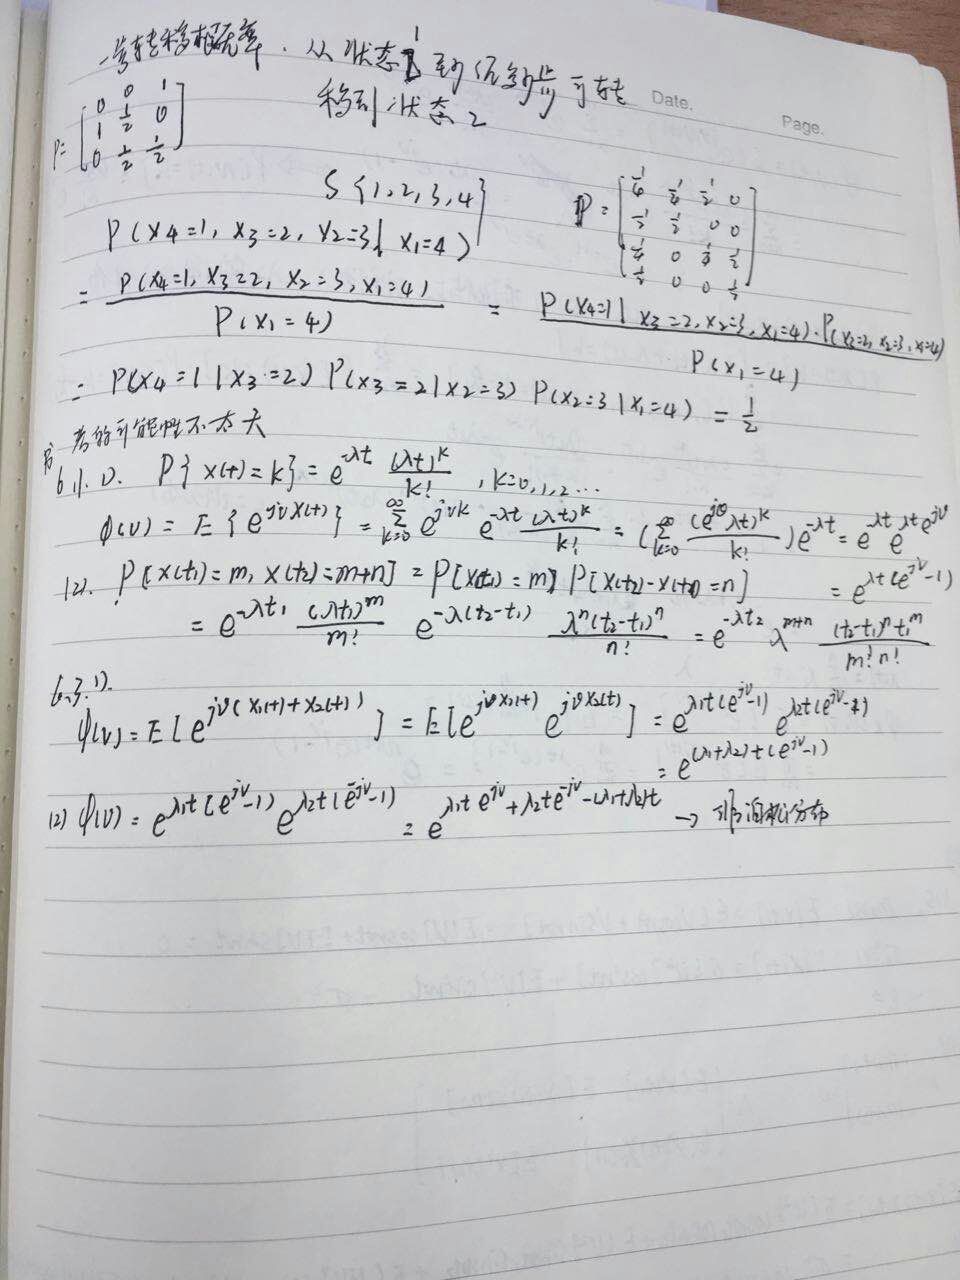 一步转移概率. 从状态1到几多步可转
移到状态2
Date.
Page.
P= [0 0 1
0 1/2 0
1 1/2
0 1/2 1/2]
S {1, 2, 3, 4}
P = [1/4 1/4 1/2 0
1/2 1/2 0 0
1/4 0 1/4 1/2
1/2 0 0 1/2]
P(X4=1, X3=2, X2=3 | X1=4)
= P(X4=1, X3=2, X2=3, X1=4) / P(X1=4) = P(X4=1 | X3=2, X2=3, X1=4)·P(X3=2, X2=3, X1=4) / P(X1=4)
= P(X4=1 | X3=2) P(X3=2 | X2=3) P(X2=3 | X1=4) = 1/2
考的可能性不太大
6.1. 1). P{X(t)=k} = e^{-λt} (λt)^k / k! , k=0,1,2...
φ(v) = E{e^{jvX(t)}} = Σ_{k=0}^{∞} e^{jvk} e^{-λt} (λt)^k / k! = (Σ_{k=0}^{∞} (e^{jv}λt)^k / k!) e^{-λt} = e^{-λt} e^{λt e^{jv}}
= e^{λt(e^{jv}-1)}
(2). P[X(t1)=m, X(t2)=m+n] = P[X(t1)=m] P[X(t2)-X(t1)=n]
= e^{-λt1} (λt1)^m / m! e^{-λ(t2-t1)} λ^n(t2-t1)^n / n! = e^{-λt2} λ^{m+n} (t2-t1)^n t1^m / m!n!
6.3. 1).
φ(v) = E[e^{jv(X1(t)+X2(t))}] = E[e^{jvX1(t)} e^{jvX2(t)}] = e^{λ1t(e^{jv}-1)} e^{λ2t(e^{jv}-1)}
= e^{(λ1+λ2)t(e^{jv}-1)}
(2) φ(v) = e^{λ1t(e^{jv}-1)} e^{λ2t(e^{-jv}-1)} = e^{λ1t e^{jv}+λ2t e^{-jv}-(λ1+λ2)t} → 非泊松分布